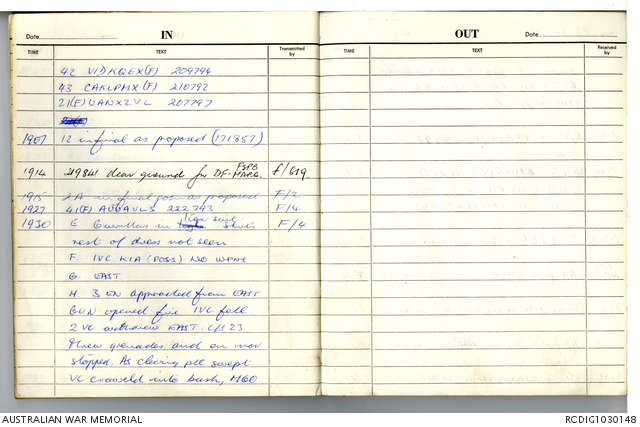 Date IN
TIME TEXT Transmitted by
42 VIDKQEX(F) 209794
43 CAKLPMX(F) 210792
21(F) UANXZVL 207797
1907 12 in final as proposed (171857)
1914 219841 clear ground for DF- FSPB F/
1915 2A in final pos as proposed F/2
1927 41(F) AUGAULS 222793 F/4
1930 E Guerillas in shirts F/4
rest of dress not seen
F. 1VC KIA (POSS) NO WPNS
G. EAST
H. 3 EN approached from EAST
GUN opened fire 1VC fell
2 VC withdrew EAST. C/S 23
threw grenades and en mov
stopped. As clearing ptl swept
VC crawled into bush, M60
OUT Date
TIME TEXT Received by
AUSTRALIAN WAR MEMORIAL RCDIG1030148